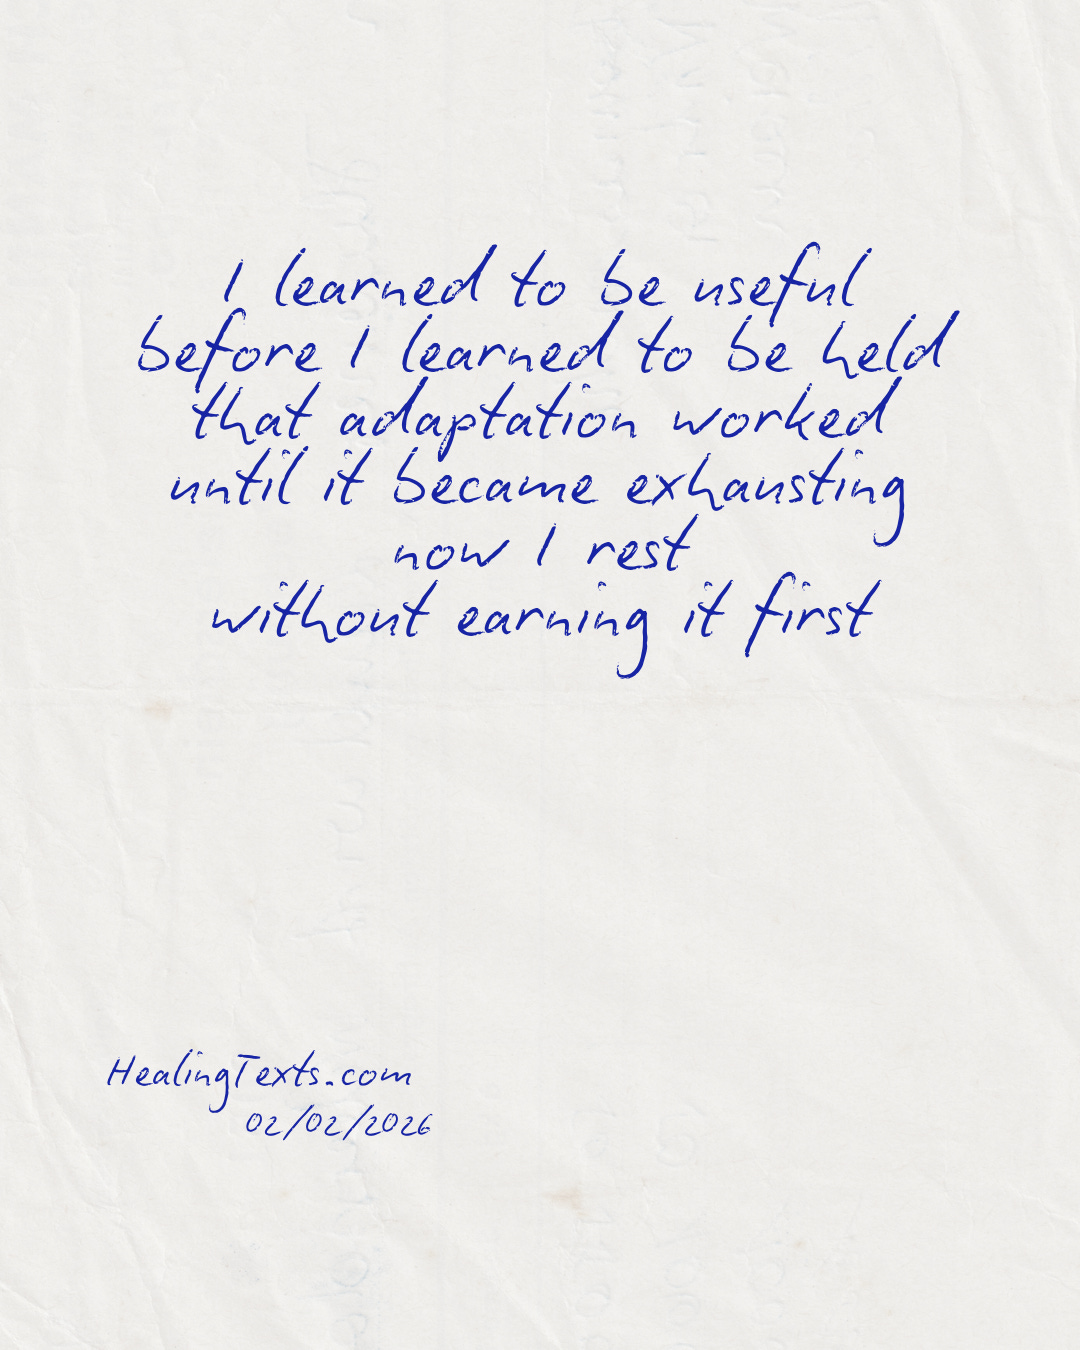 I learned to be useful
before I learned to be held
that adaptation worked
until it became exhausting
now I rest
without earning it first
HealingTexts.com
02/02/2026